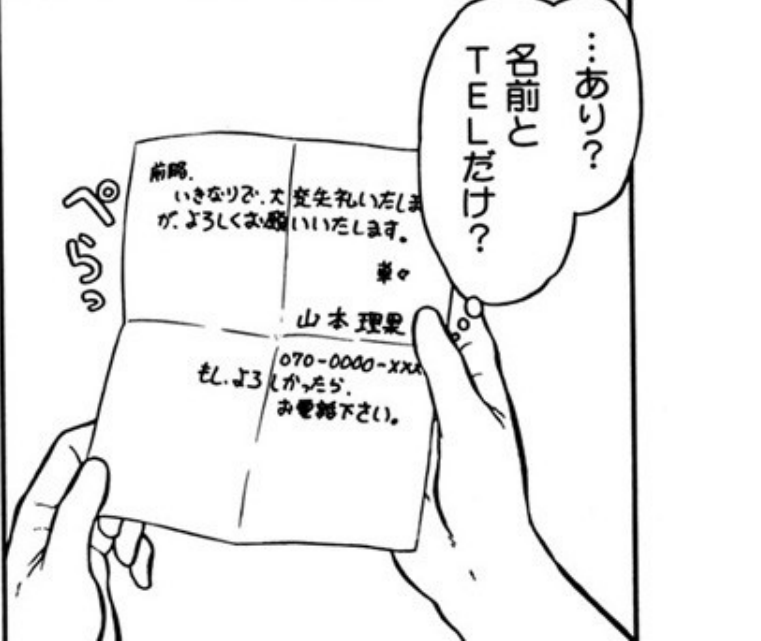 …あり?
名前と
TELだけ?
ぺらっ
前略、
いきなりで、大変失礼いたしま
が、よろしくお願いいたします。
草々
山本理果
070-0000-xxx
もし、よろしかったら、
お電話下さい。